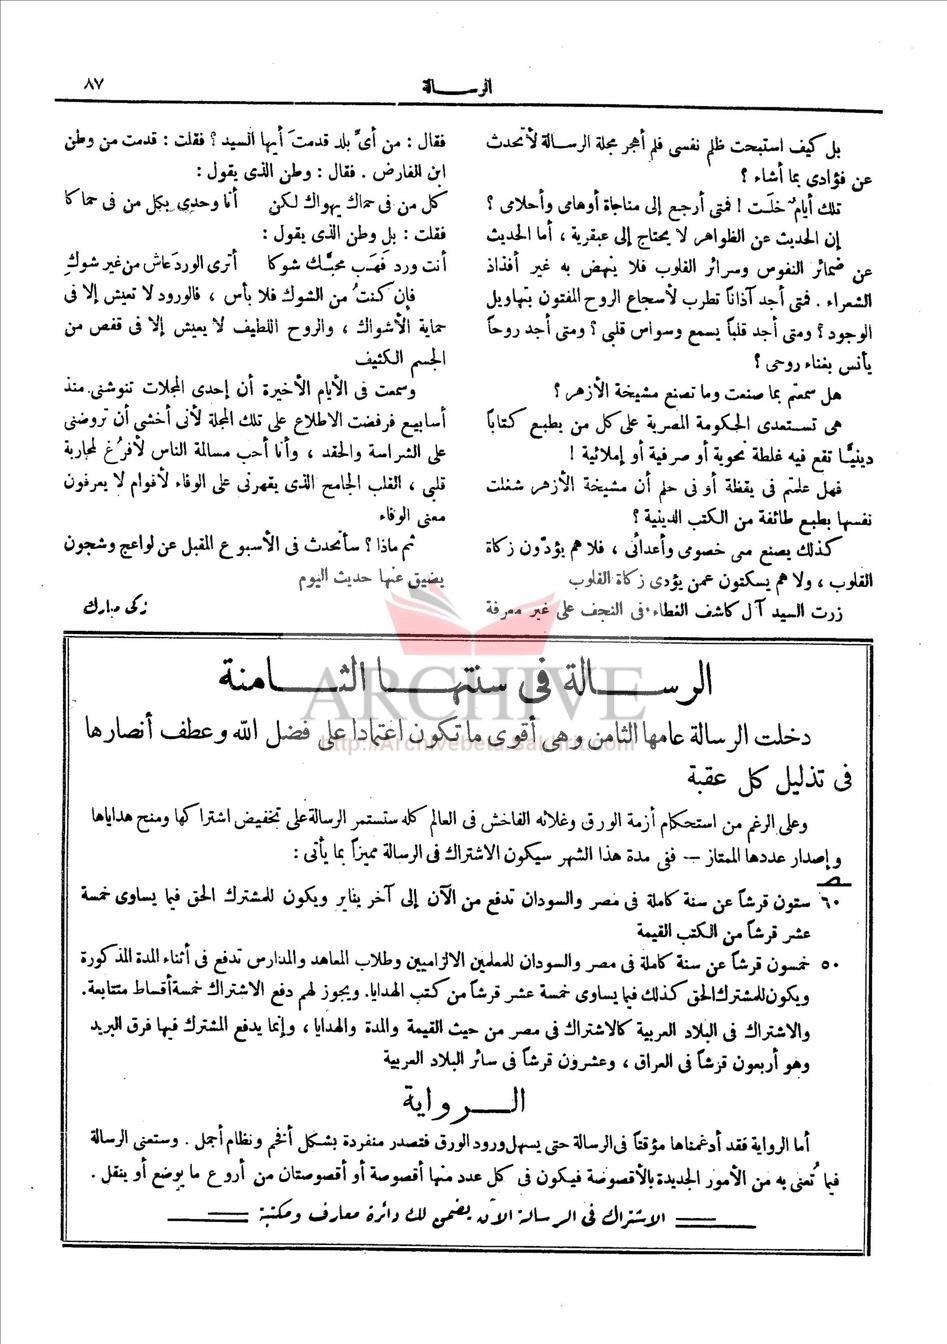 ٨٧
الرسـالة
بل كيف استبحت ظلم نفسى فلم أهجر مجلة الرسالة لأتحدث
عن فؤادى بما أشاء ؟
تلك أيامٌ خلَت ! فمتى أرجع إلى مناجاة أوهامى وأحلامى ؟
إن الحديث عن الظواهر لا يحتاج إلى عبقرية ، أما الحديث
عن ضمائر النفوس وسرائر القلوب فلا ينهض به غير أفذاذ
الشعراء . فمتى أجد آذاناً تطرب لأسجاع الروح المفتون بتهاويل
الوجود ؟ ومتى أجد قلباً يسمع وسواس قلبى ؟ ومتى أجد روحاً
يأنس بغناء روحى ؟
هل سمعتم بما صنعت وما تصنع مشيخة الأزهر ؟
هى تستعدى الحكومة المصرية على كل من يطبع كتاباً
دينيًّا تقع فيه غلطة نحوية أو صرفية أو إملائية !
فهل علمتم فى يقظة أو فى حلم أن مشيخة الأزهر شغلت
نفسها بطبع طائفة من الكتب الدينية ؟
كذلك يصنع معى خصومى وأعدائى ، فلا هم يؤدّون زكاة
القلوب ، ولا هم يسكتون عمن يؤدى زكاة القلوب
زرت السيد آل كاشف الغطاء فى النجف على غير معرفة
فقال : من أىّ بلد قدمتَ أيها السيد ؟ فقلت : قدمت من وطن
ابن الفارض . فقال : وطن الذى يقول :
كل من فى حماك يهواك لكن أنا وحدى بكل من فى حماكا
فقلت : بل وطن الذى يقول :
أنت ورد فَهَب محبَّك شوكا أترى الورد عاش من غير شوكِ
فإن كنتُ من الشوك فلا بأس ، فالورود لا تعيش إلا فى
حماية الأشواك ، والروح اللطيف لا يعيش إلا فى قفص من
الجسم الكثيف
وسمعت فى الأيام الأخيرة أن إحدى المجلات تنوشنى منذ
أسابيع فرفضت الاطلاع على تلك المجلة لأنى أخشى أن تروضنى
على الشراسة والحقد ، وأنا أحب مسالمة الناس لأفرُغ لمحاربة
قلبى ، القلب الجامح الذى يقهرنى على الوفاء لأقوام لا يعرفون
معنى الوفاء
ثم ماذا ؟ سأتحدث فى الأسبوع المقبل عن لواعج وشجون
يضيق عنها حديث اليوم
زكى مبارك
الرســالة فى سنتهـا الثـامنة
دخلت الرسالة عامها الثامن وهى أقوى ما تكون اعتمادا على فضل الله وعطف أنصارها
فى تذليل كل عقبة
وعلى الرغم من استحكام أزمة الورق وغلائه الفاحش فى العالم كله ستستمر الرسالة على تخفيض اشتراكها ومنح هداياها
وإصدار عددها الممتاز — ففى مدة هذا الشهر سيكون الاشتراك فى الرسالة مميزاً بما يأتى :
٦٠ ستون قرشاً عن سنة كاملة فى مصر والسودان تدفع من الآن إلى آخر يناير ويكون للمشترك الحق فيما يساوى خمسة
عشر قرشاً من الكتب القيمة
٥٠ خمسون قرشاً عن سنة كاملة فى مصر والسودان للمعلمين الالزاميين وطلاب المعاهد والمدارس تدفع فى أثناء المدة المذكورة
ويكون للمشترك الحق كذلك فيما يساوى خمسة عشر قرشاً من كتب الهدايا. ويجوز لهم دفع الاشتراك خمسة أقساط متتابعة.
والاشتراك فى البلاد العربية كالاشتراك فى مصر من حيث القيمة والمدة والهدايا ، وإنما يدفع المشترك فيها فرق البريد
وهو أربعون قرشاً فى العراق ، وعشرون قرشاً فى سائر البلاد العربية
الــرواية
أما الرواية فقد أدغمناها مؤقتاً فى الرسالة حتى يسهل ورود الورق فتصدر منفردة بشكل أفخم ونظام أجمل . وستعنى الرسالة
فيما تُعنى به من الأمور الجديدة بالأقصوصة فيكون فى كل عدد منها أقصوصة أو أقصوصتان من أروع ما يوضع أو ينقل .
الاشتراك فى الرسالة الآن يضمن لك دائرة معارف ومكتبة
ARCHIVE
http://Archivebeta.Sakhrit.com